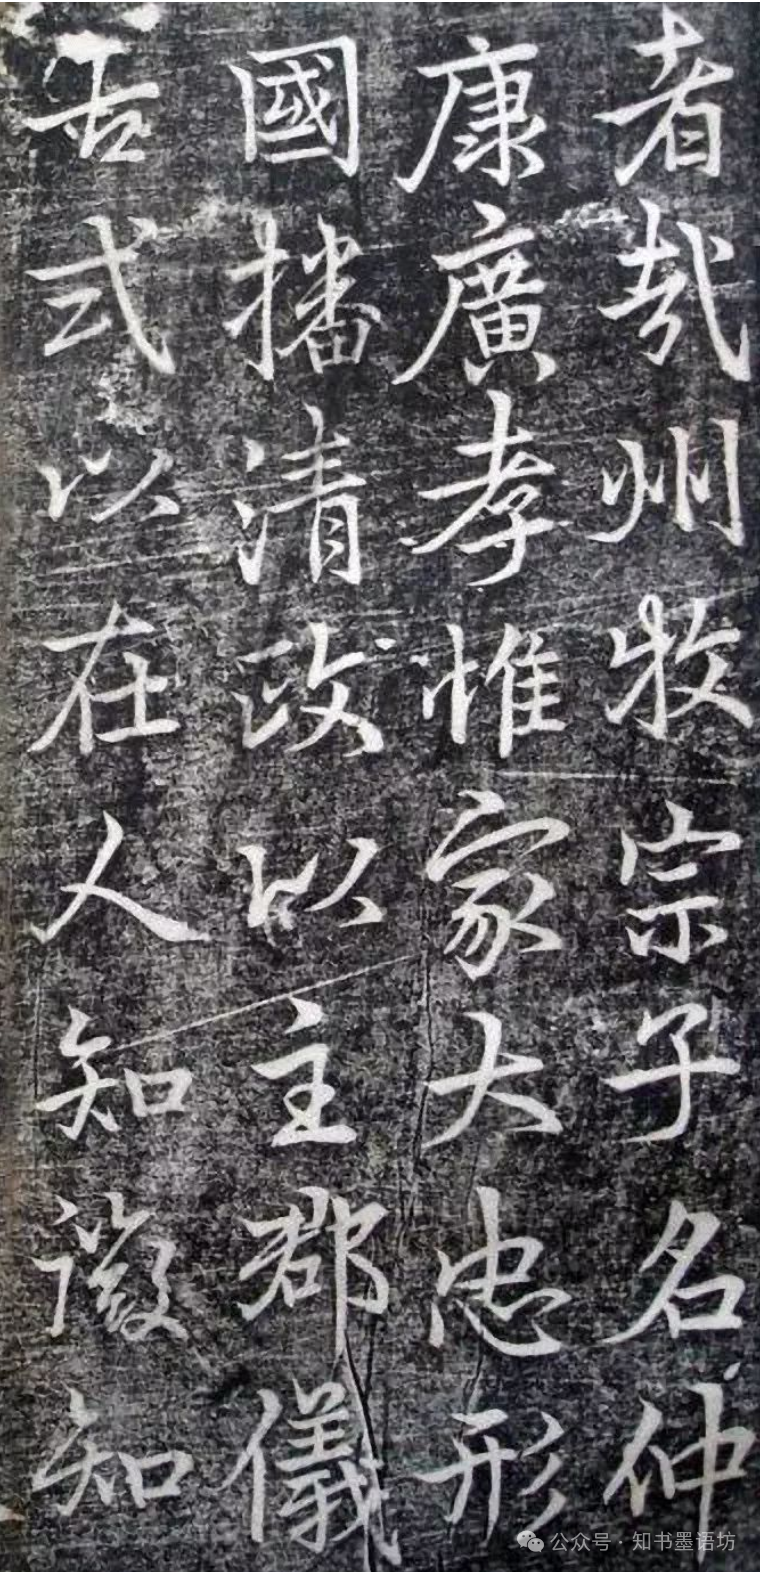 者哉州牧宗子名仲
康廣孝惟家大忠形
國播清政以主郡儀
古式以在人知知
公众号·知书墨语坊